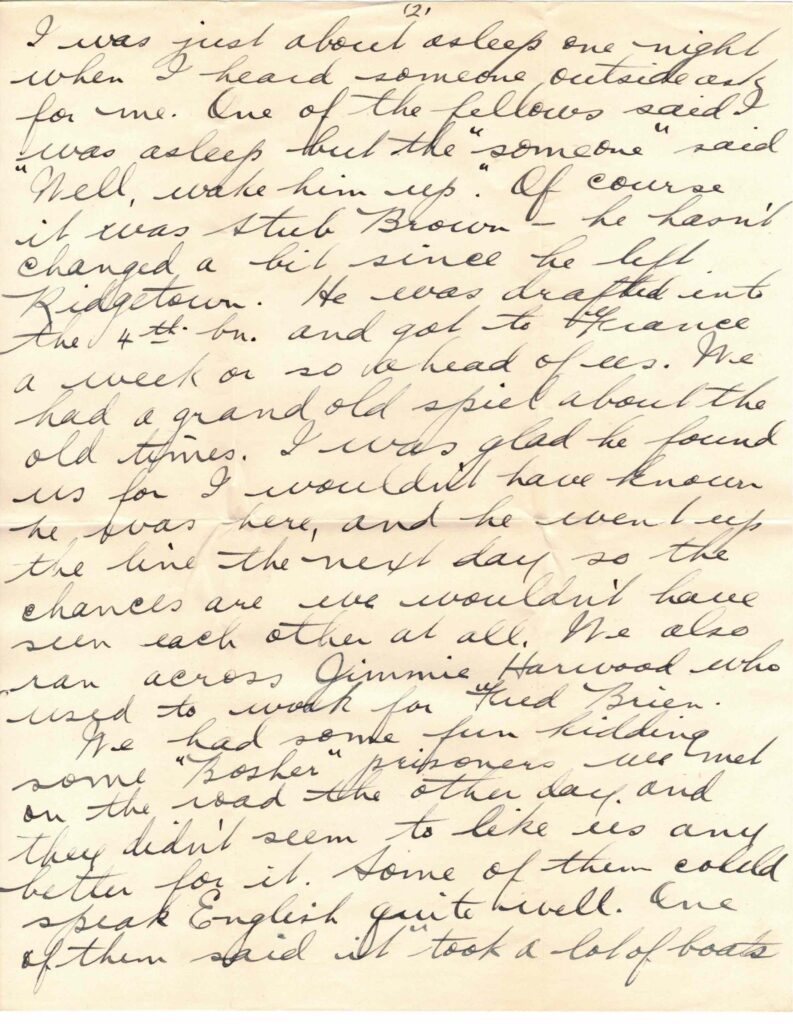 (2)
I was just about asleep one night
when I heard someone outside ask
for me. One of the fellows said I
was asleep but the "someone" said
"Well, wake him up." Of course
it was Stub Brown – he hasn't
changed a bit since he left
Ridgetown. He was drafted into
the 4th. bn. and got to France
a week or so ahead of us. We
had a grand old spiel about the
old times. I was glad he found
us for I wouldn't have known
he was here, and he went up
the line the next day so the
chances are we wouldn't have
seen each other at all. We also
ran across Jimmie Harwood who
used to work for Fred Brien.
We had some fun kidding
some "Bosher" prisoners we met
on the road the other day and
they didn't seem to like us any
better for it. Some of them could
speak English quite well. One
of them said it "took a lot of boats